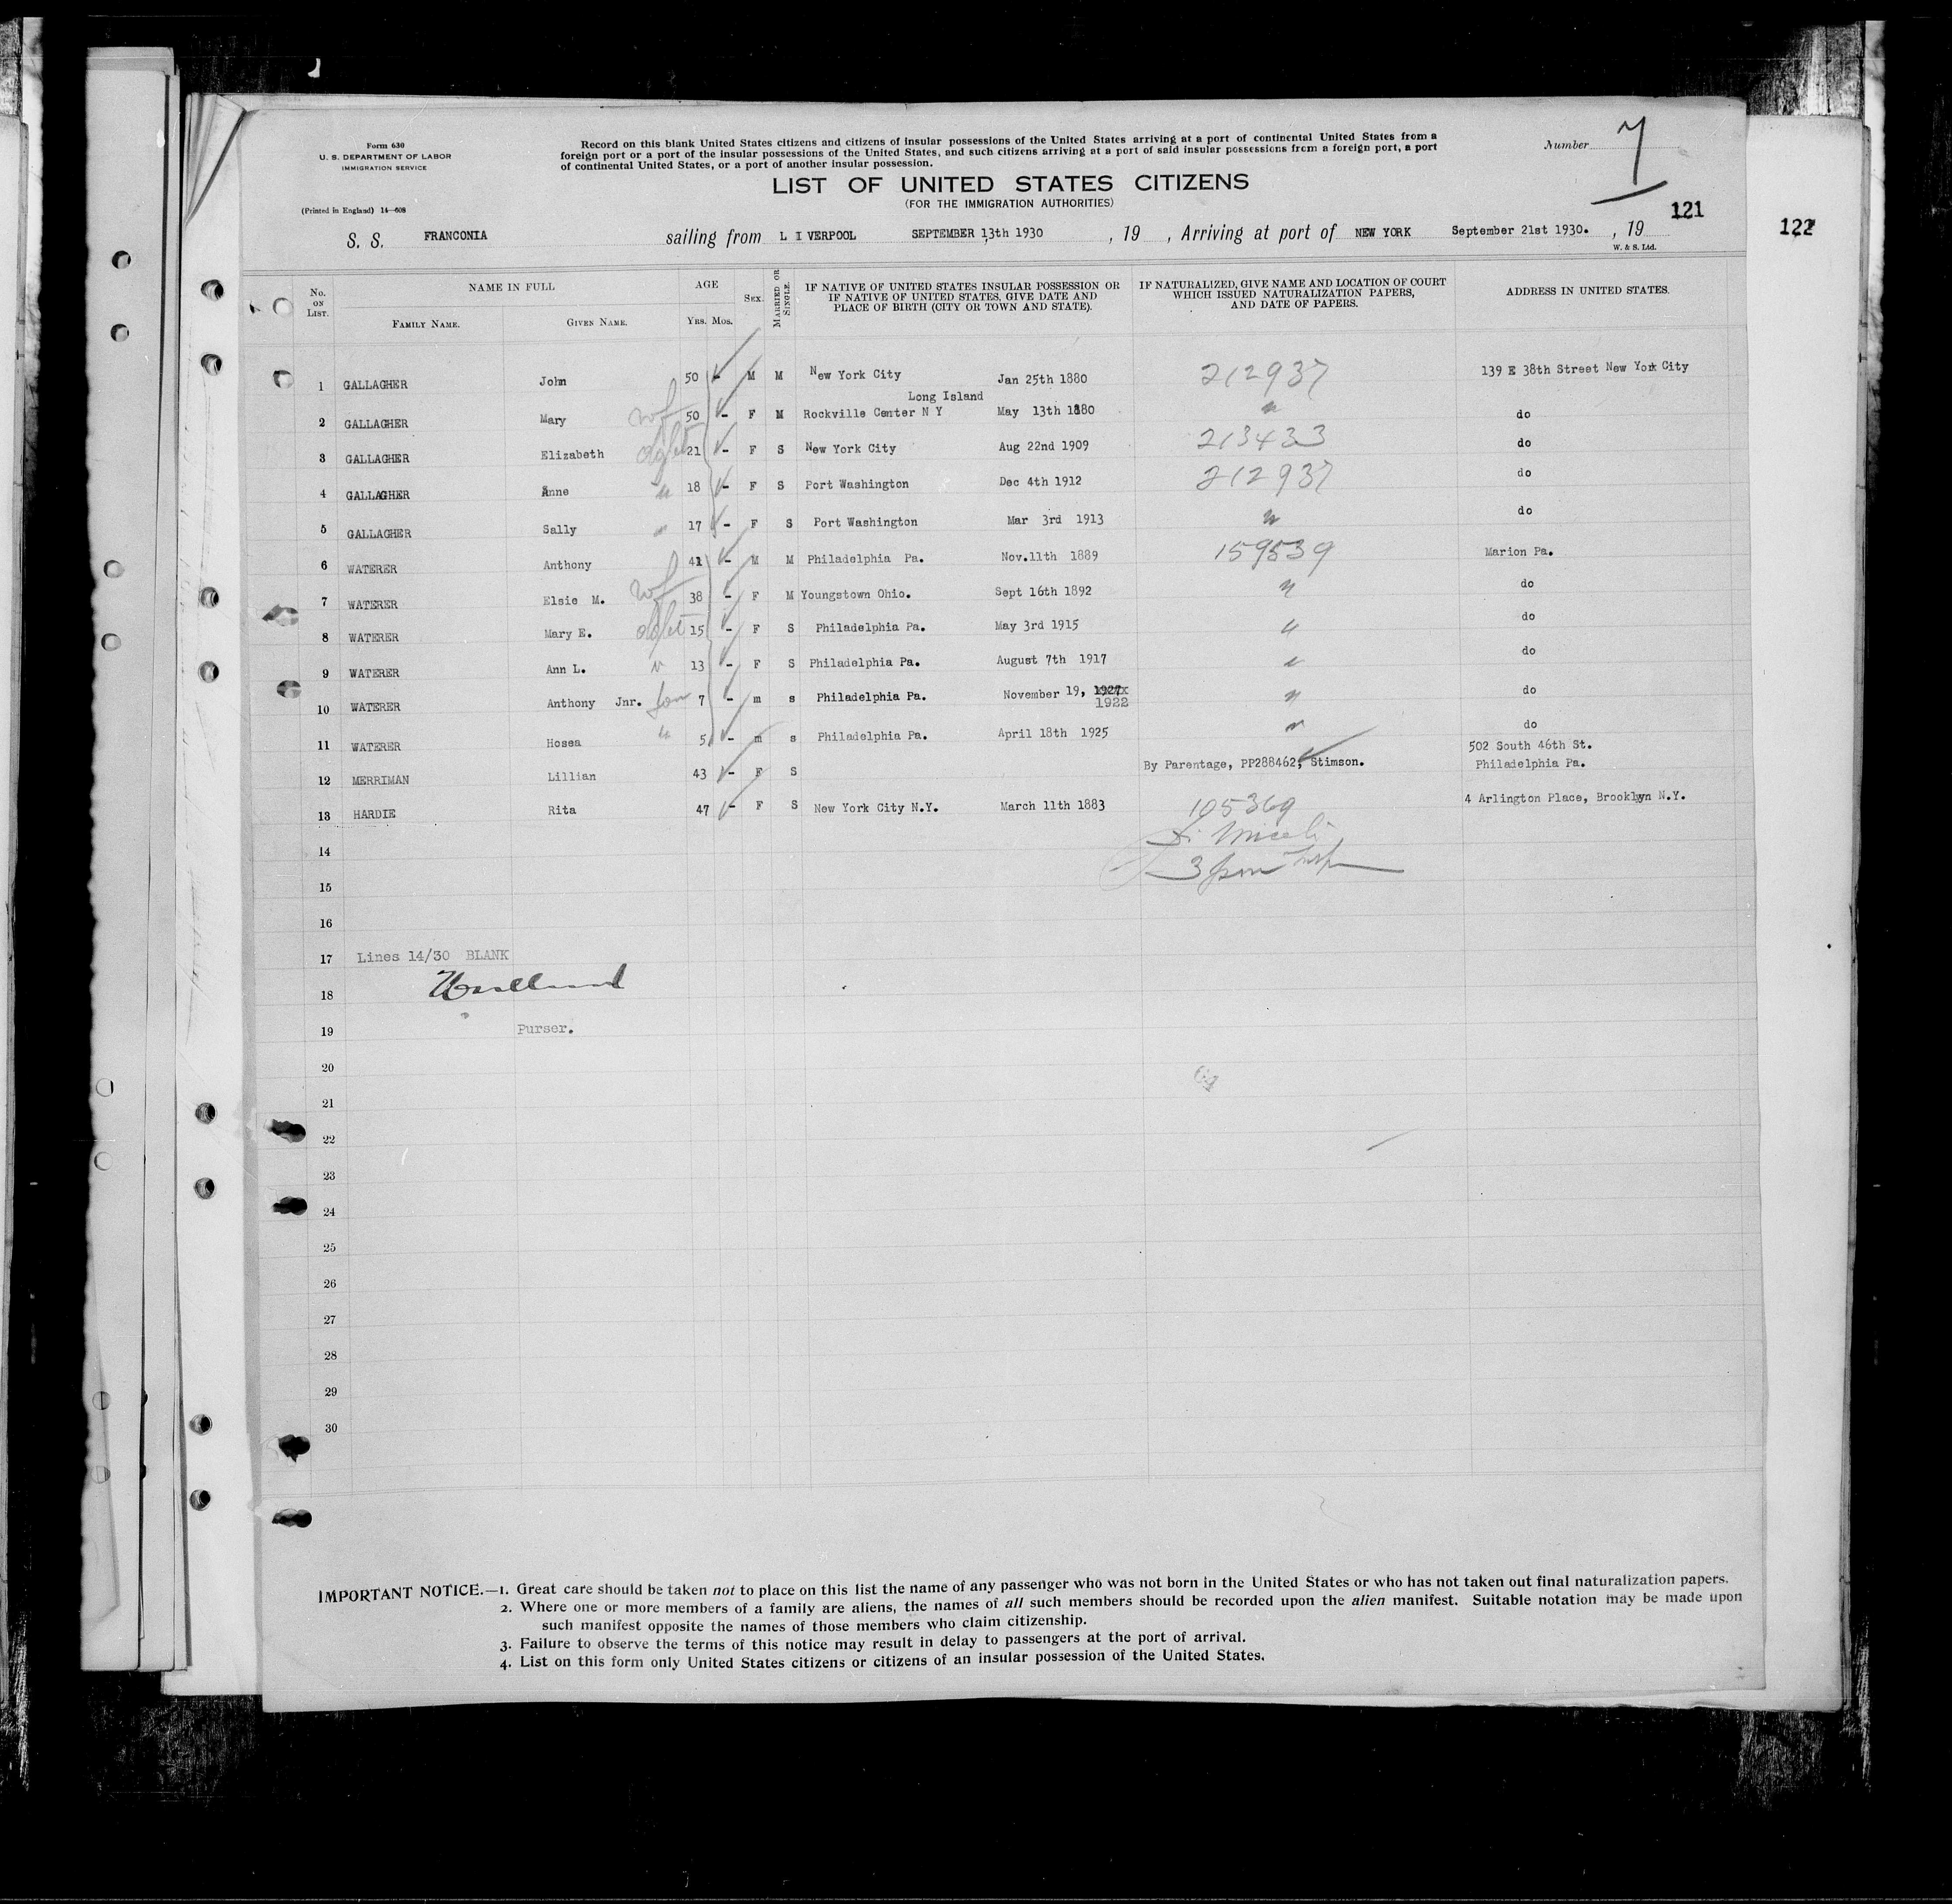 Form 630
U. S. DEPARTMENT OF LABOR
IMMIGRATION SERVICE
(Printed in England) 14—608
Record on this blank United States citizens and citizens of insular possessions of the United States arriving at a port of continental United States from a
foreign port or a port of the insular possessions of the United States, and such citizens arriving at a port of said insular possessions from a foreign port, a port
of continental United States, or a port of another insular possession.
Number 7
LIST OF UNITED STATES CITIZENS
(FOR THE IMMIGRATION AUTHORITIES)
121
122
S. S. FRANCONIA sailing from L I VERPOOL SEPTEMBER 13th 1930 , 19 , Arriving at port of NEW YORK September 21st 1930. , 19
W. & S. Ltd.
No. ON LIST. NAME IN FULL FAMILY NAME. GIVEN NAME. AGE YRS. MOS. SEX. MARRIED OR SINGLE.
IF NATIVE OF UNITED STATES INSULAR POSSESSION OR
IF NATIVE OF UNITED STATES, GIVE DATE AND
PLACE OF BIRTH (CITY OR TOWN AND STATE).
IF NATURALIZED, GIVE NAME AND LOCATION OF COURT
WHICH ISSUED NATURALIZATION PAPERS,
AND DATE OF PAPERS.
ADDRESS IN UNITED STATES.
1 GALLAGHER John 50 - M M New York City Jan 25th 1880 212937 139 E 38th Street New York City
Long Island
2 GALLAGHER Mary wf 50 - F M Rockville Center N Y May 13th 1880 " do
3 GALLAGHER Elizabeth dght 21 - F S New York City Aug 22nd 1909 213433 do
4 GALLAGHER Anne " 18 - F S Port Washington Dec 4th 1912 212937 do
5 GALLAGHER Sally " 17 - F S Port Washington Mar 3rd 1913 " do
6 WATERER Anthony 41 - M M Philadelphia Pa. Nov.11th 1889 159539 Marion Pa.
7 WATERER Elsie M. wf 38 - F M Youngstown Ohio. Sept 16th 1892 " do
8 WATERER Mary E. dght 15 - F S Philadelphia Pa. May 3rd 1915 " do
9 WATERER Ann L. " 13 - F S Philadelphia Pa. August 7th 1917 " do
10 WATERER Anthony Jnr. son 7 - m s Philadelphia Pa. November 19, 1922 " do
11 WATERER Hosea " 5 - m s Philadelphia Pa. April 18th 1925 " do
12 MERRIMAN Lillian 43 - F S By Parentage, PP288462, Stimson. 502 South 46th St.
Philadelphia Pa.
13 HARDIE Rita 47 - F S New York City N.Y. March 11th 1883 105369 4 Arlington Place, Brooklyn N.Y.
14
15
16
17 Lines 14/30 BLANK
18
19 Purser.
20
21
22
23
24
25
26
27
28
29
30
IMPORTANT NOTICE.—1. Great care should be taken not to place on this list the name of any passenger who was not born in the United States or who has not taken out final naturalization papers.
2. Where one or more members of a family are aliens, the names of all such members should be recorded upon the alien manifest. Suitable notation may be made upon
such manifest opposite the names of those members who claim citizenship.
3. Failure to observe the terms of this notice may result in delay to passengers at the port of arrival.
4. List on this form only United States citizens or citizens of an insular possession of the United States.